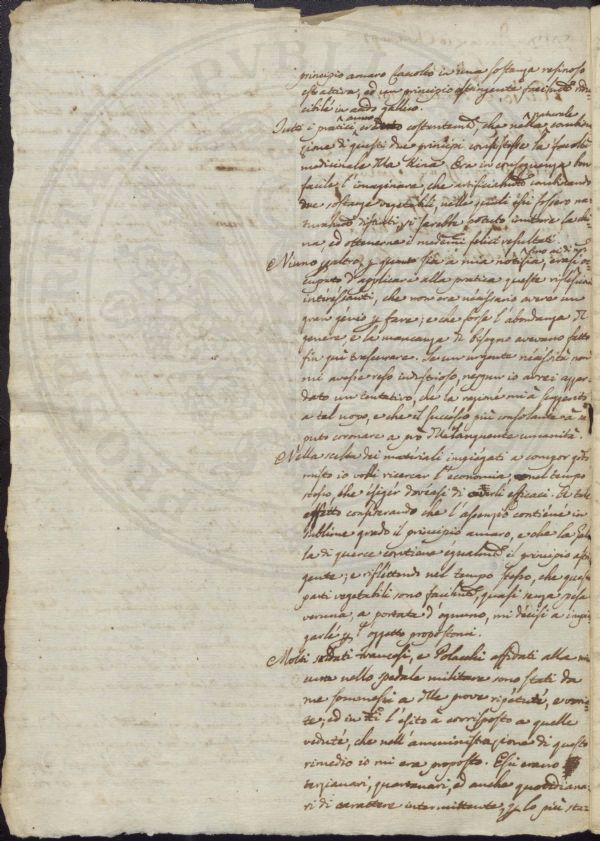 principio amaro facolto in una sostanza resinosa
estrattiva, ed un principio astringente facilmte ridu-
cibile in acido gallico.
naturale
Tutti i pratici costantemte, che nella combina-
zione di questi due principi consistesse la facoltà
medicinale della Kina. Era in conseguenza ben
facile l'imaginare, che artificialmte combinando
due sostanze vegetabili, nelle quali essi fossero na-
turalmte distinti, si sarebbe potuto imitare la chi-
na, ed ottenerne i medemi felici risultati.
Niuno peraltro, per quanto sia a mia notizia, erasi oc-
cupato d'applicare alla pratica queste riflessioni
interessanti, che non era necessario avere un
gran genio per fare; e che forse l'abondanza del
genere, e la mancanza di bisogno avevano fatto
fin qui trascurare. Se un urgente necessità non
mi avesse reso industrioso, neppur io avrei azzar-
dato un tentativo, che la ragione m'ha suggerito
a tal uopo, e che il successo più consolante ha sa-
puto coronare a prò della languente umanità.
Nella scelta dei materiali impiegati a compor qto
misto io volli ricercar l'economia, nel tempo
stesso, che esiger doveasi di averli efficaci. A tale
effetto considerando che l'assenzio contiene in
sublime grado il principio amaro, e che la Gal-
la di querce contiene egualmte il principio astrin-
gente; e riflettendo nel tempo stesso, che queste
parti vegetabili sono facilmte, quasi senza spesa
veruna, a portata d'ognuno, mi decisi a impie-
garle per l'oggetto propostomi.
Molti soldati francesi, e Polacchi affidati alla mia
cura nello spedale militare sono stati da
me sommessi a delle prove ripetute, e varia-
te; ed in tti l'esito a corrisposto a quelle
vedute, che nell'amministrazione di questo
rimedio io mi era proposto. Essi erano
terzianari, quartanari, ed anche quotidiana-
ri di carattere intermittente, per lo più sta-